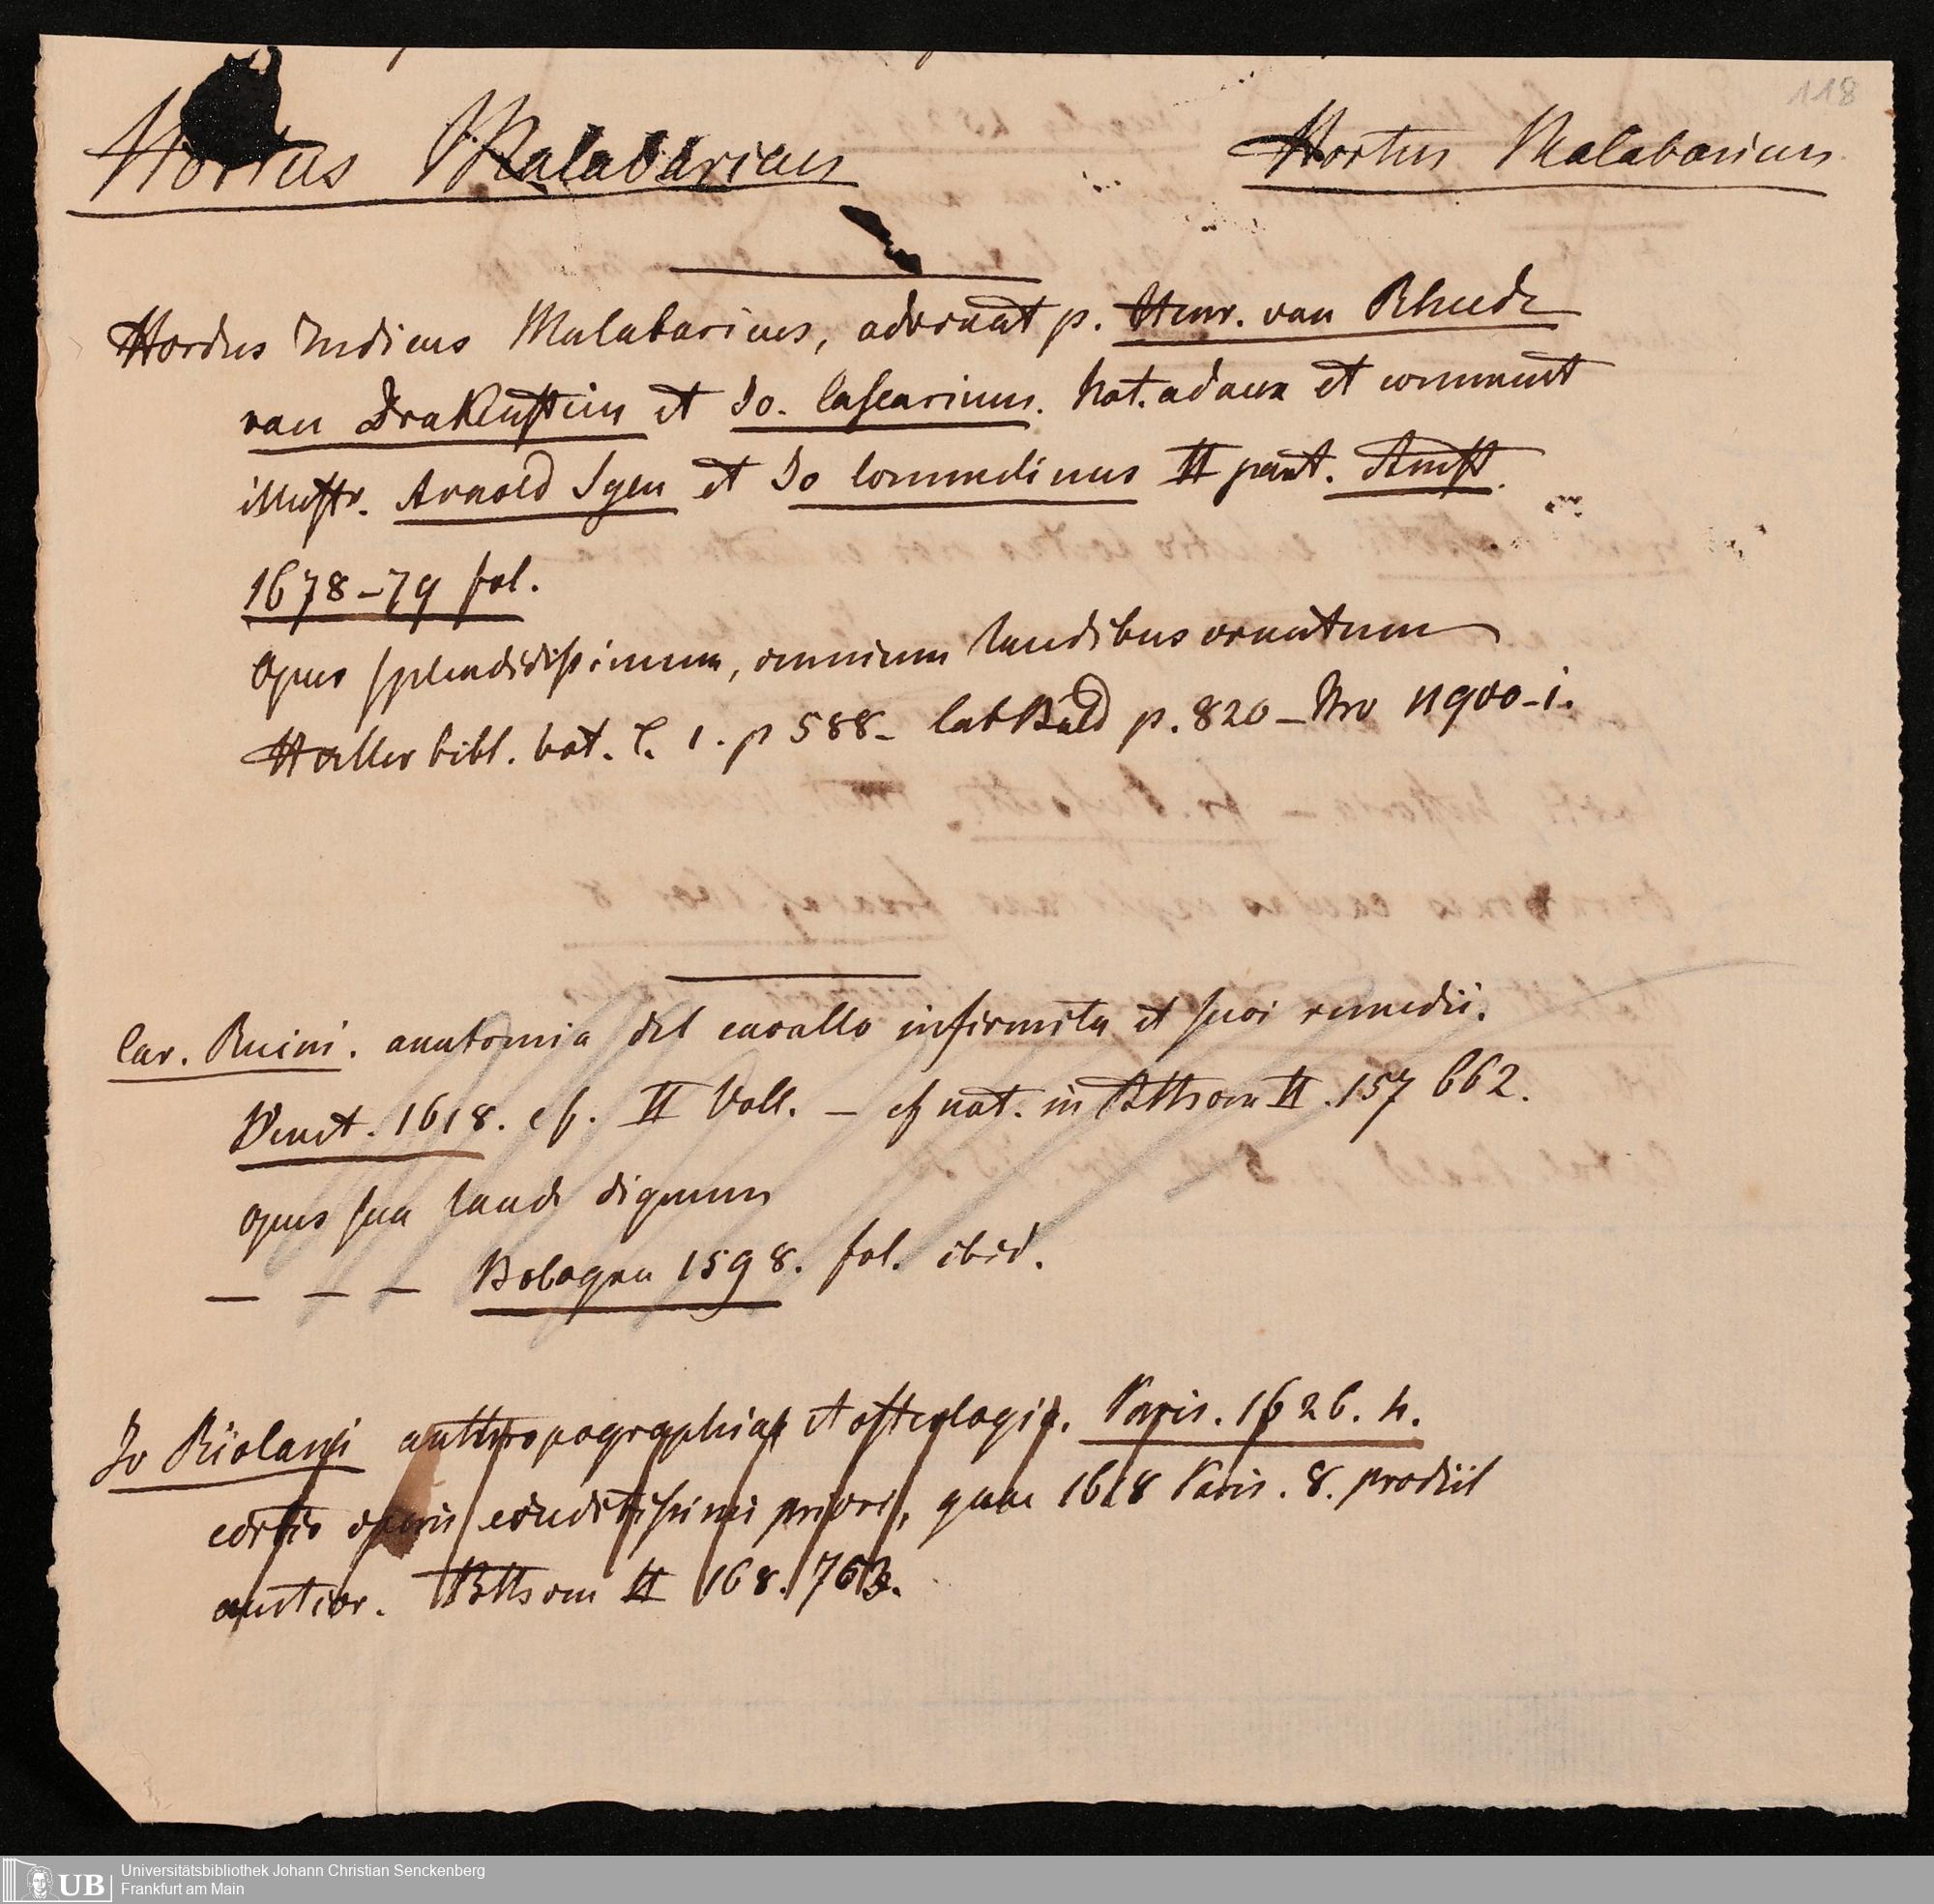 118
Hortus Malabaricus
Hortus Malabaricus
Hordus Indicus Malabaricus, adornat p. Henr. van Rhede
van Drakenstein et Jo. Casearinus. Not. adaux et comment
illustr. Arnold Syen et Jo Commelinus II part. Amst.
1678–79 fol.
Opus splendidissimum, omnium laudibus ornatum
Haller bibl. bot. T. 1. p 588 – Cat Bald p. 820 – No 11900–1.
Car. Ruini. anatomia del cavallo infirmita et suoi remedii.
Venet. 1618. ef. II Voll. – cf nat. in Bttsom II. 157 662.
opus sua laude dignum
— — — Bologna 1598. fol. ibid.
Jo Riolani anthropographia et osteologia. Paris. 1626. 4.
editio operis eruditissimi priori, quae 1618 Paris. 8. prodiit
auctior. Bttsom II 168. 763.
Universitätsbibliothek Johann Christian Senckenberg
Frankfurt am Main
UB